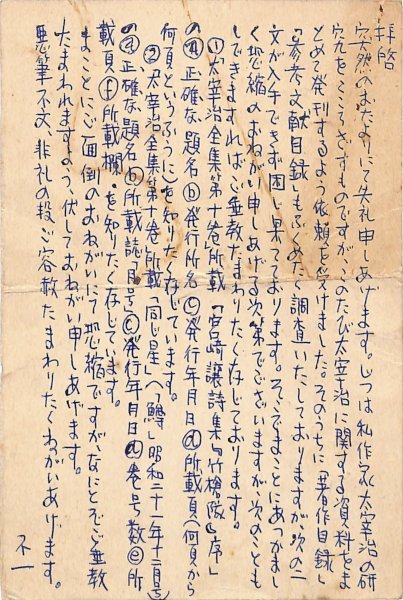 拝啓
突然のおたよりにて失礼申しあげます。じつは私作家太宰治の研
究をこころざすものですが、このたび太宰治に関する資料をま
とめて発刊するよう依頼を受けました。そのうちに「著作目録」
「参考文献目録」もふくめたく調査いたしておりますが、次の二
文が入手できず困じ果てております。そこでまことにあつかまし
く恐縮のおねがい申しあげる次第でございますが、次のことも
しできますれば、ご垂教たまわりたく存じております。
①太宰治全集第十巻所載「宮崎譲詩集『竹槍隊』序」
の ⓐ正確な題名 ⓑ発行所名 ⓒ発行年月日 ⓓ所載頁(何頁から
何頁というふうに)を知りたく存じています。
②太宰治全集第十巻所載「同じ星」(「鱒」昭和二十一年十二月号)
の ⓐ正確な題名 ⓑ所載誌月号 ⓒ発行年月日 ⓓ巻号数 ⓔ所
載頁 ⓕ所載欄、を知りたく存じています。
まことにご面倒のおねがいにて恐縮ですが、なにとぞご垂教
たまわれますよう、伏しておねがい申しあげます。
悪筆不文、非礼の段ご容赦たまわりたくねがいあげます。
不一